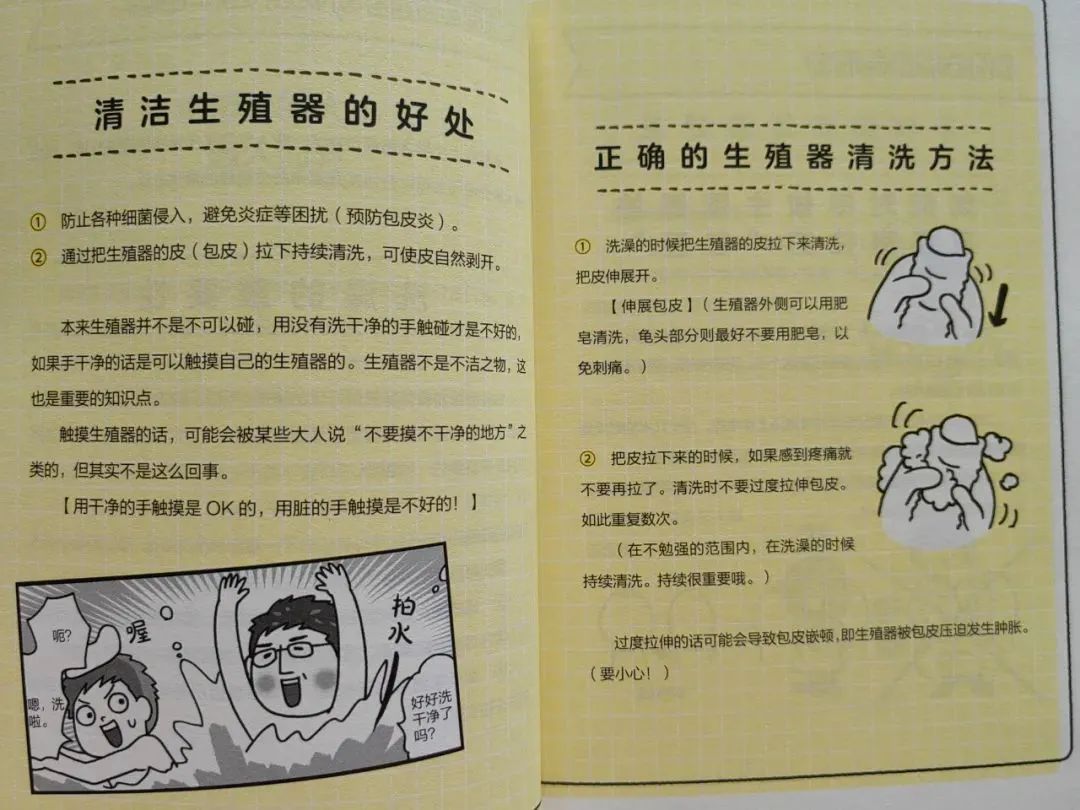 清洁生殖器的好处
① 防止各种细菌侵入，避免炎症等困扰（预防包皮炎）。
② 通过把生殖器的皮（包皮）拉下持续清洗，可使皮自然剥开。
本来生殖器并不是不可以碰，用没有洗干净的手触碰才是不好的，
如果手干净的话是可以触摸自己的生殖器的。生殖器不是不洁之物，这
也是重要的知识点。
触摸生殖器的话，可能会被某些大人说“不要摸不干净的地方”之
类的，但其实不是这么回事。
【用干净的手触摸是 OK 的，用脏的手触摸是不好的！】
呃？
喔
嗯，洗
啦。
拍水
好好洗
干净了
吗？
正确的生殖器清洗方法
① 洗澡的时候把生殖器的皮拉下来清洗，
把皮伸展开。
【伸展包皮】（生殖器外侧可以用肥
皂清洗，龟头部分则最好不要用肥皂，以
免刺痛。）
② 把皮拉下来的时候，如果感到疼痛就
不要再拉了。清洗时不要过度拉伸包皮。
如此重复数次。
（在不勉强的范围内，在洗澡的时候
持续清洗。持续很重要哦。）
过度拉伸的话可能会导致包皮嵌顿，即生殖器被包皮压迫发生肿胀。
（要小心！）